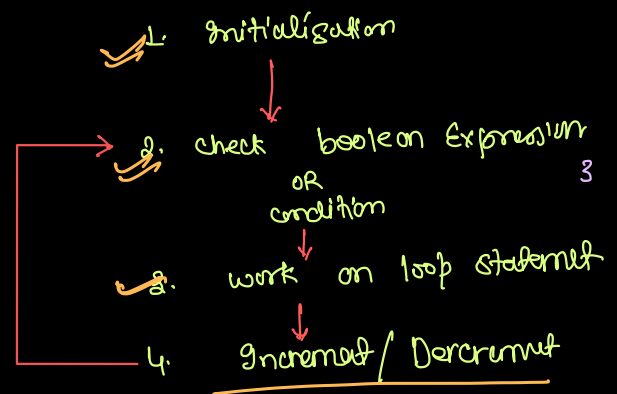 1. Initialisation
2. check boolean Expression
3
OR
condition
3. work on loop statemet
4. Incremet / Dercremet